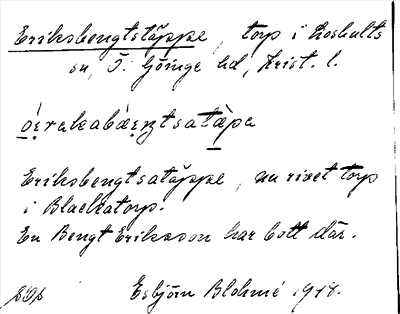 Eriksbengtstäppe, torp i Loshults
sn, Ö. Göinge hd, Krist. l.
Eriksbengtsatäppe, nu rivet torp
i Blackatorp.
En Bengt Eriksson har bott där.
Esbjörn Blohmé 1948.